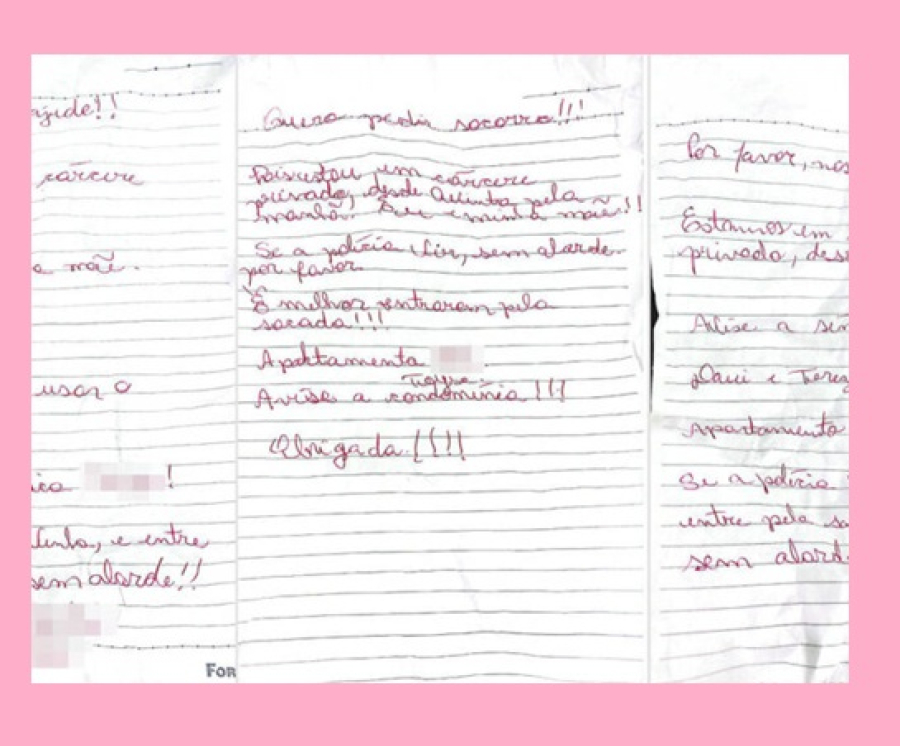 ajude!!
cárcere
a mãe.
usar o
!
e entre
sem alarde!!
FOR
Quero pedir socorro!!!
Pois estou em cárcere
privado, desde Quinta pela
manhã. Eu e minha mãe!!
Se a polícia vir, sem alarde
por favor.
É melhor entrarem pela
sacada!!!
Apartamento
Avise a condomínia!!!
Obrigada!!!!
Por favor, nos
Estamos em
privado, des
Avise a sín
Davi e
Apartamento
Se a polícia
entre pela sa
sem alard